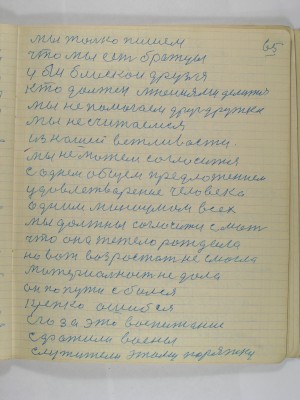 65
мы толко пишем
что мы сот братцы
и бы близкои друзя
кто должен мнениями делится
мы не помогаем друг дружке
мы не считаемся
из нашей вежливасти.
мы не можем согласится
с одним общем предложением
удовлетварение человека
одним минимумом всех
мы должны согласится мать
что она тетего раждала
но вот возростат не смогла
митериалност не дала
он по пути сбился
ошибся
его за это воспитание
сдратили воены
служители этому порятку